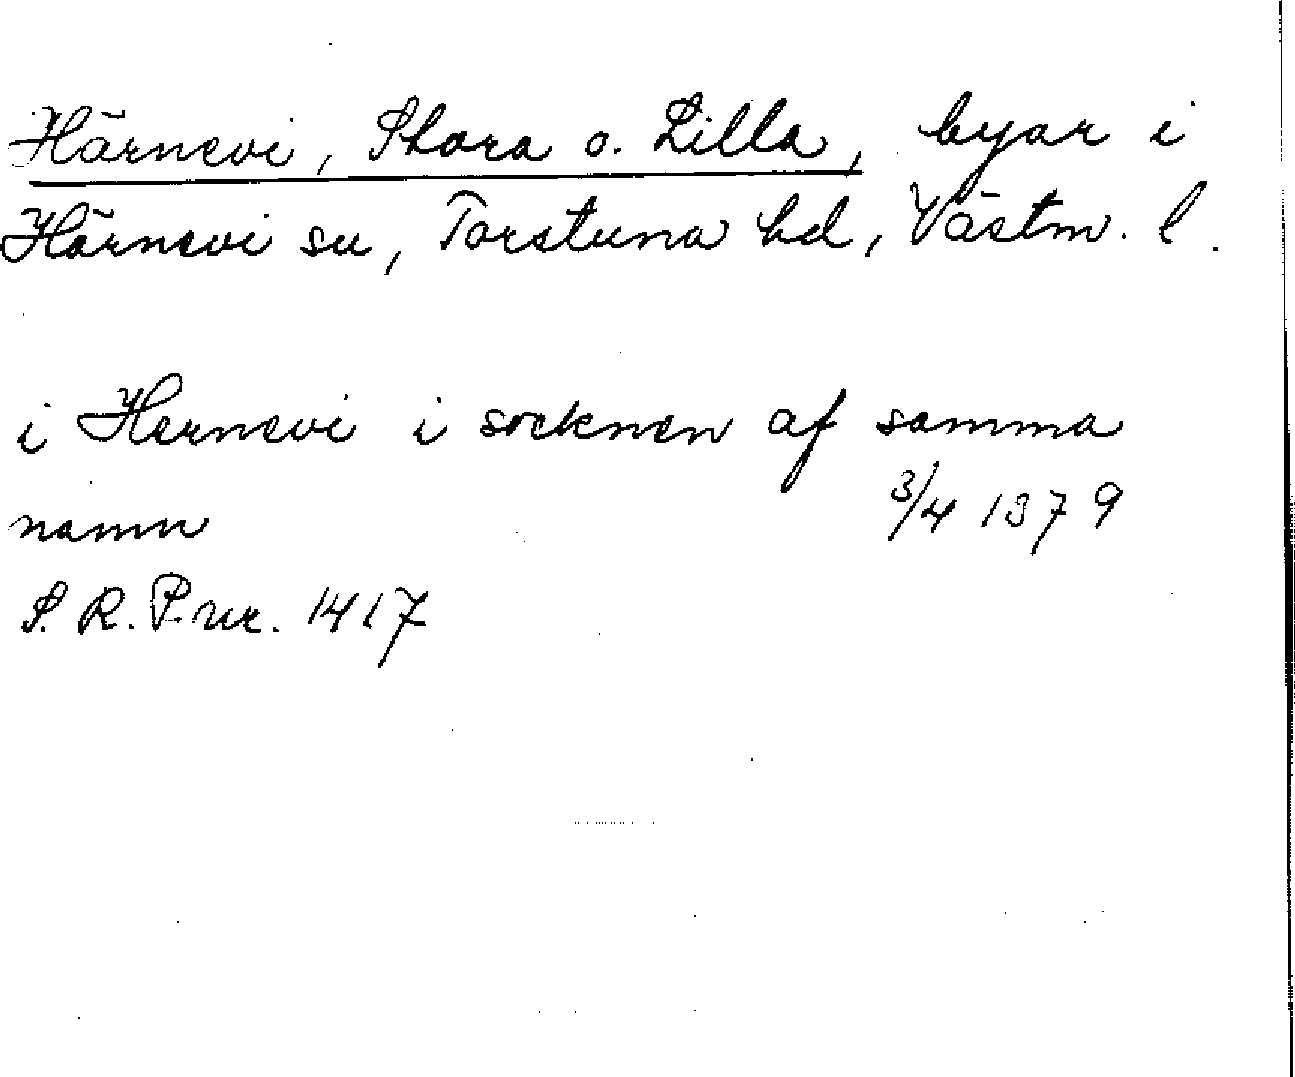 Härnevi, Stora o. Lilla, byar i
Härnevi sn, Torstuna hd, Västm. l.
i Hernevi i socknen af samma
namn 3/4 1379
S. R. P. nr. 1417